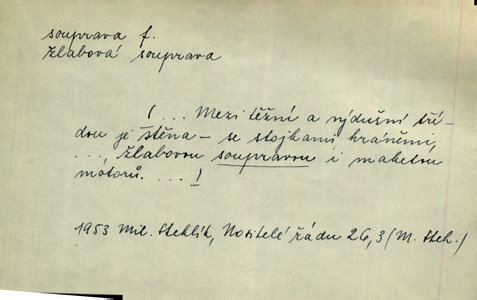 souprava f.
žlabová souprava
(... Mezi těžní a výdušní tří-
dou je stěna – se stojkami hráněmi,
..., žlabovou soupravou i maketou
motorů. ...!
1953 Mil. Steklík, Nositelé řádu 26,3 (M. Steh.)